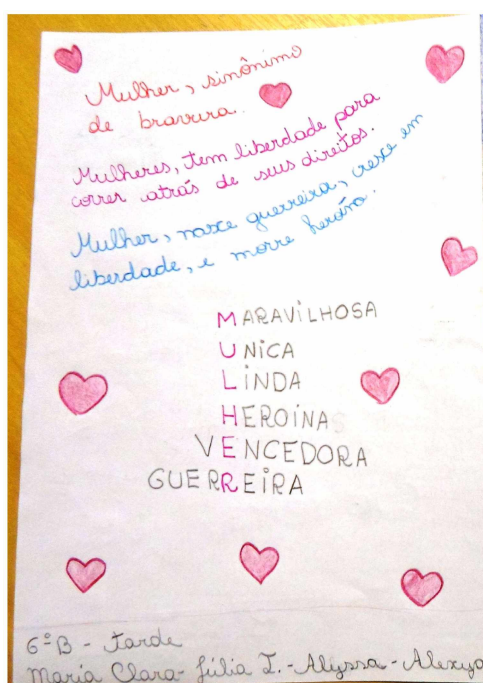 Mulher, sinônimo
de bravura.
Mulheres, tem liberdade para
correr atrás de seus direitos.
Mulher, nasce guerreira, cresce em
liberdade, e morre heroína.
MARAVILHOSA
UNICA
LINDA
HEROINA
VENCEDORA
GUERREIRA
6ºB - Tarde
Maria Clara - Júlia T. - Alyssa - Alexya